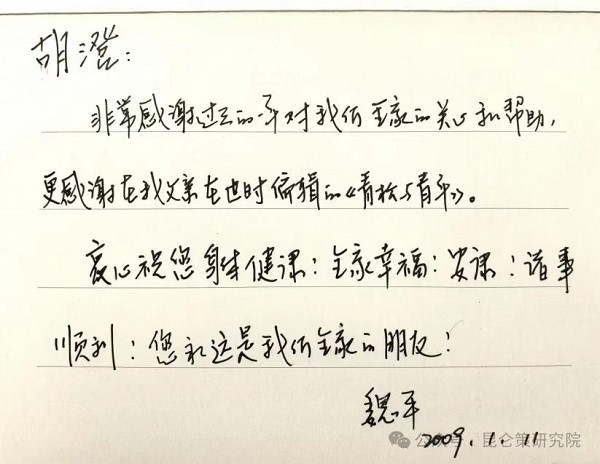 胡澄:
非常感谢过去的一年对我们全家的关心和帮助,
更感谢在我父亲在世时编辑的《青松与青年》。
衷心祝您身体健康!全家幸福!安康!诸事
顺利!您永远是我们全家的朋友!
魏平
2009.1.11
公众号·昆仑策研究院